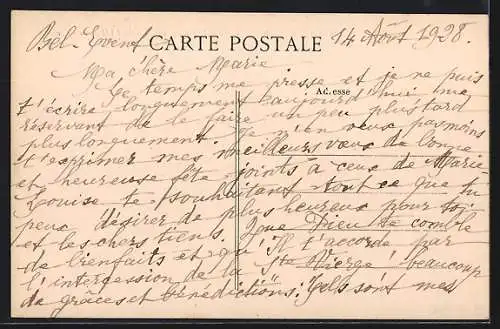 Bel-Event CARTE POSTALE 14 Août 1928.
Ma chère Marie
Le temps me presse et je ne puis
Adresse
t'écrire longuement aujourd'hui me
réservant de le faire un peu plus tard
plus longuement. Je n'en veux pas moins
t'exprimer mes meilleurs vœux de bonne
et heureuse fête joints à ceux de Marie
Louise te souhaitant tout ce que tu
peux désirer de plus heureux pour toi
et les chers tiens. Que Dieu te comble
de bienfaits et qu'Il t'accorde par
l'intercession de la Ste Vierge beaucoup
de grâces et bénédictions: Tels sont mes